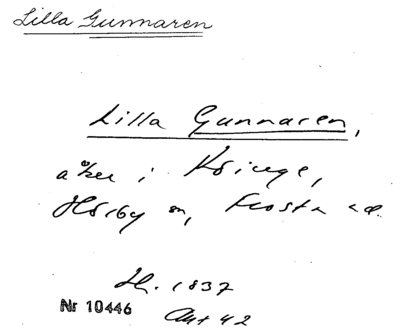 Lilla Gunnaren
Lilla Gunnaren,
åker i Köinge,
Hörby sn, Frosta hd.
H. 1837
Nr 10446
Akt 42